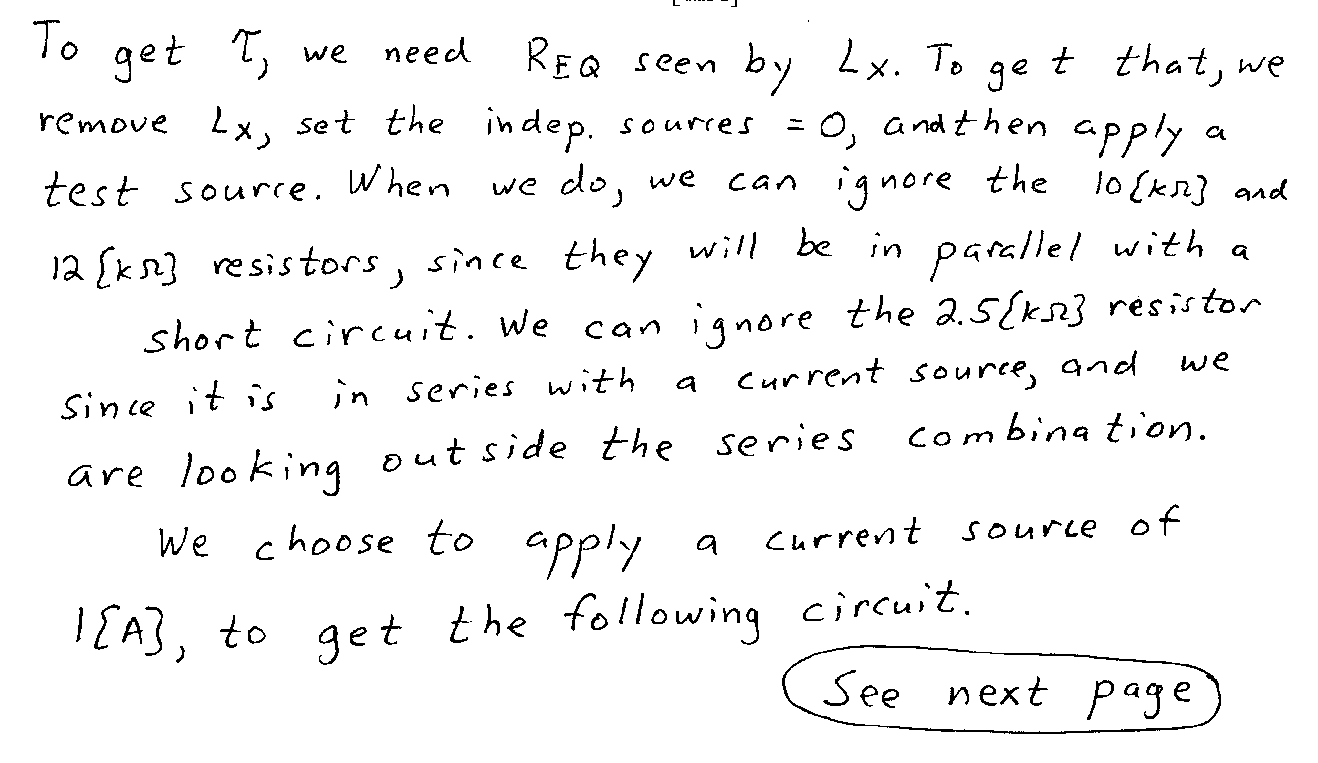 To get τ, we need R_EQ seen by L_X. To get that, we
remove L_X, set the indep. sources = 0, and then apply a
test source. When we do, we can ignore the 10{kΩ} and
12{kΩ} resistors, since they will be in parallel with a
short circuit. We can ignore the 2.5{kΩ} resistor
since it is in series with a current source, and we
are looking outside the series combination.
We choose to apply a current source of
1{A}, to get the following circuit.
See next page